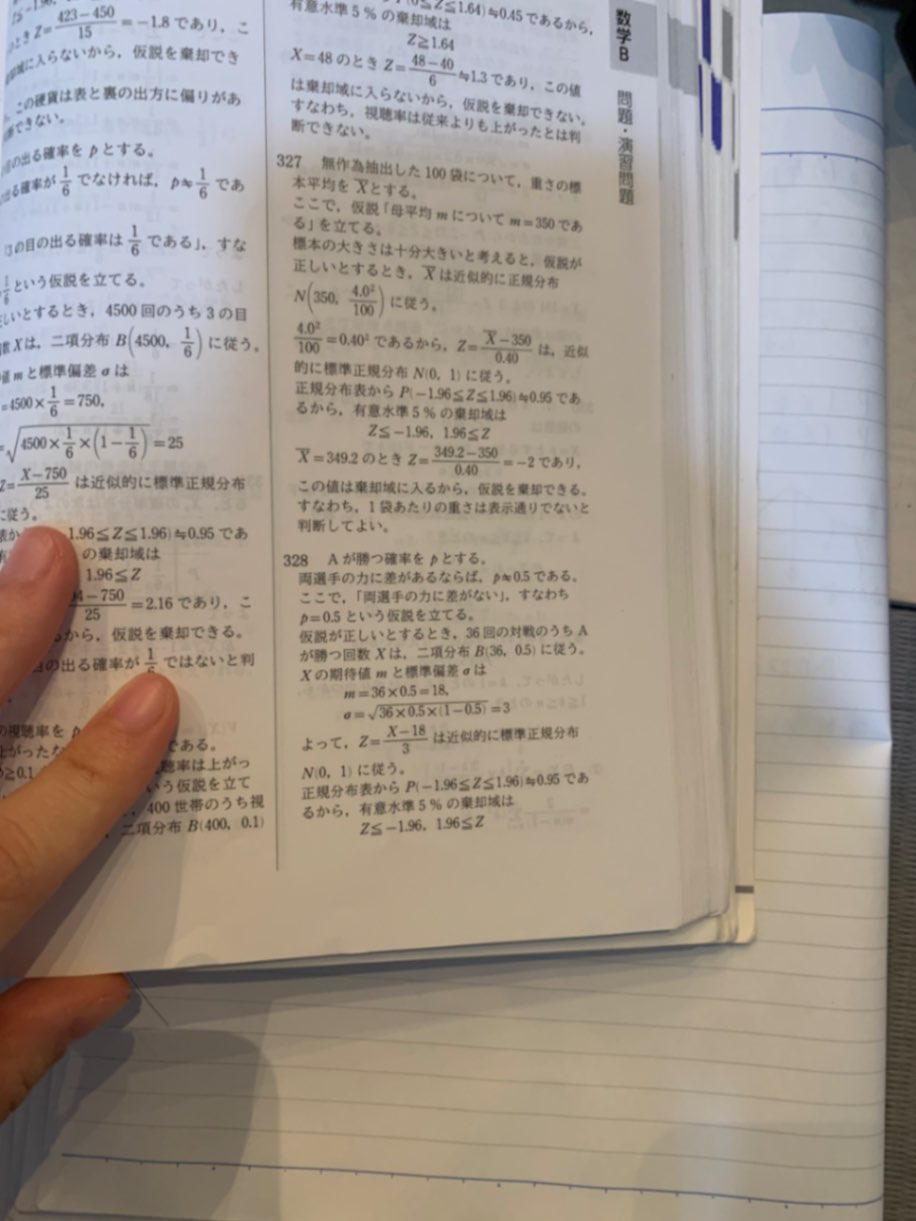 423−450
Z=――― =−1.8 であり，こ
15
域に入らないから，仮説を棄却でき
この硬貨は表と裏の出方に偏りがあ
断できない。
目の出る確率を p とする。
出る確率が 1/6 でなければ，p≒1/6 であ
「3の目の出る確率は 1/6 である」，すな
1/6 という仮説を立てる。
しいとするとき，4500 回のうち 3 の目
数 X は，二項分布 B(4500, 1/6) に従う。
値 m と標準偏差 σ は
=4500×1/6=750,
=√(4500×1/6×(1−1/6))=25
Z=(X−750)/25 は近似的に標準正規分布
に従う。
1.96≦Z≦1.96)≒0.95 であ
の棄却域は
1.96≦Z
4−750
――― =2.16 であり，こ
25
るから，仮説を棄却できる。
目の出る確率が 1/6 ではないと判
の視聴率を p
上がったな である。
≧0.1 聴率は上がっ
いう仮説を立て
400 世帯のうち視
二項分布 B(400, 0.1)
(0≦Z≦1.64)≒0.45 であるから，
有意水準 5 % の棄却域は
Z≧1.64
X=48 のとき Z=(48−40)/6≒1.3 であり，この値
は棄却域に入らないから，仮説を棄却できない。
すなわち，視聴率は従来よりも上がったとは判
断できない。
327 無作為抽出した 100 袋について，重さの標
本平均を X̄ とする。
ここで，仮説「母平均 m について m=350 であ
る」を立てる。
標本の大きさは十分大きいと考えると，仮説が
正しいとするとき，X̄ は近似的に正規分布
N(350, 4.0²/100) に従う。
4.0²/100=0.40² であるから，Z=(X̄−350)/0.40 は，近似
的に標準正規分布 N(0, 1) に従う。
正規分布表から P(−1.96≦Z≦1.96)≒0.95 であ
るから，有意水準 5 % の棄却域は
Z≦−1.96, 1.96≦Z
X̄=349.2 のとき Z=(349.2−350)/0.40=−2 であり，
この値は棄却域に入るから，仮説を棄却できる。
すなわち，1 袋あたりの重さは表示通りでないと
判断してよい。
328 A が勝つ確率を p とする。
両選手の力に差があるならば，p≠0.5 である。
ここで，「両選手の力に差がない」，すなわち
p=0.5 という仮説を立てる。
仮説が正しいとするとき，36 回の対戦のうち A
が勝つ回数 X は，二項分布 B(36, 0.5) に従う。
X の期待値 m と標準偏差 σ は
m=36×0.5=18,
σ=√(36×0.5×(1−0.5))=3
よって，Z=(X−18)/3 は近似的に標準正規分布
N(0, 1) に従う。
正規分布表から P(−1.96≦Z≦1.96)≒0.95 であ
るから，有意水準 5 % の棄却域は
Z≦−1.96, 1.96≦Z
数学B 問題・演習問題